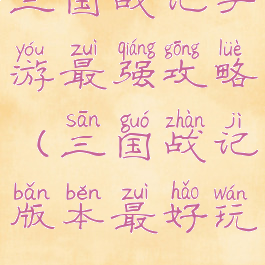 三国战记手
yóu zuì qiáng gōng lüè
游最强攻略
sān guó zhàn jì
（三国战记
bǎn běn zuì hǎo wán
版本最好玩